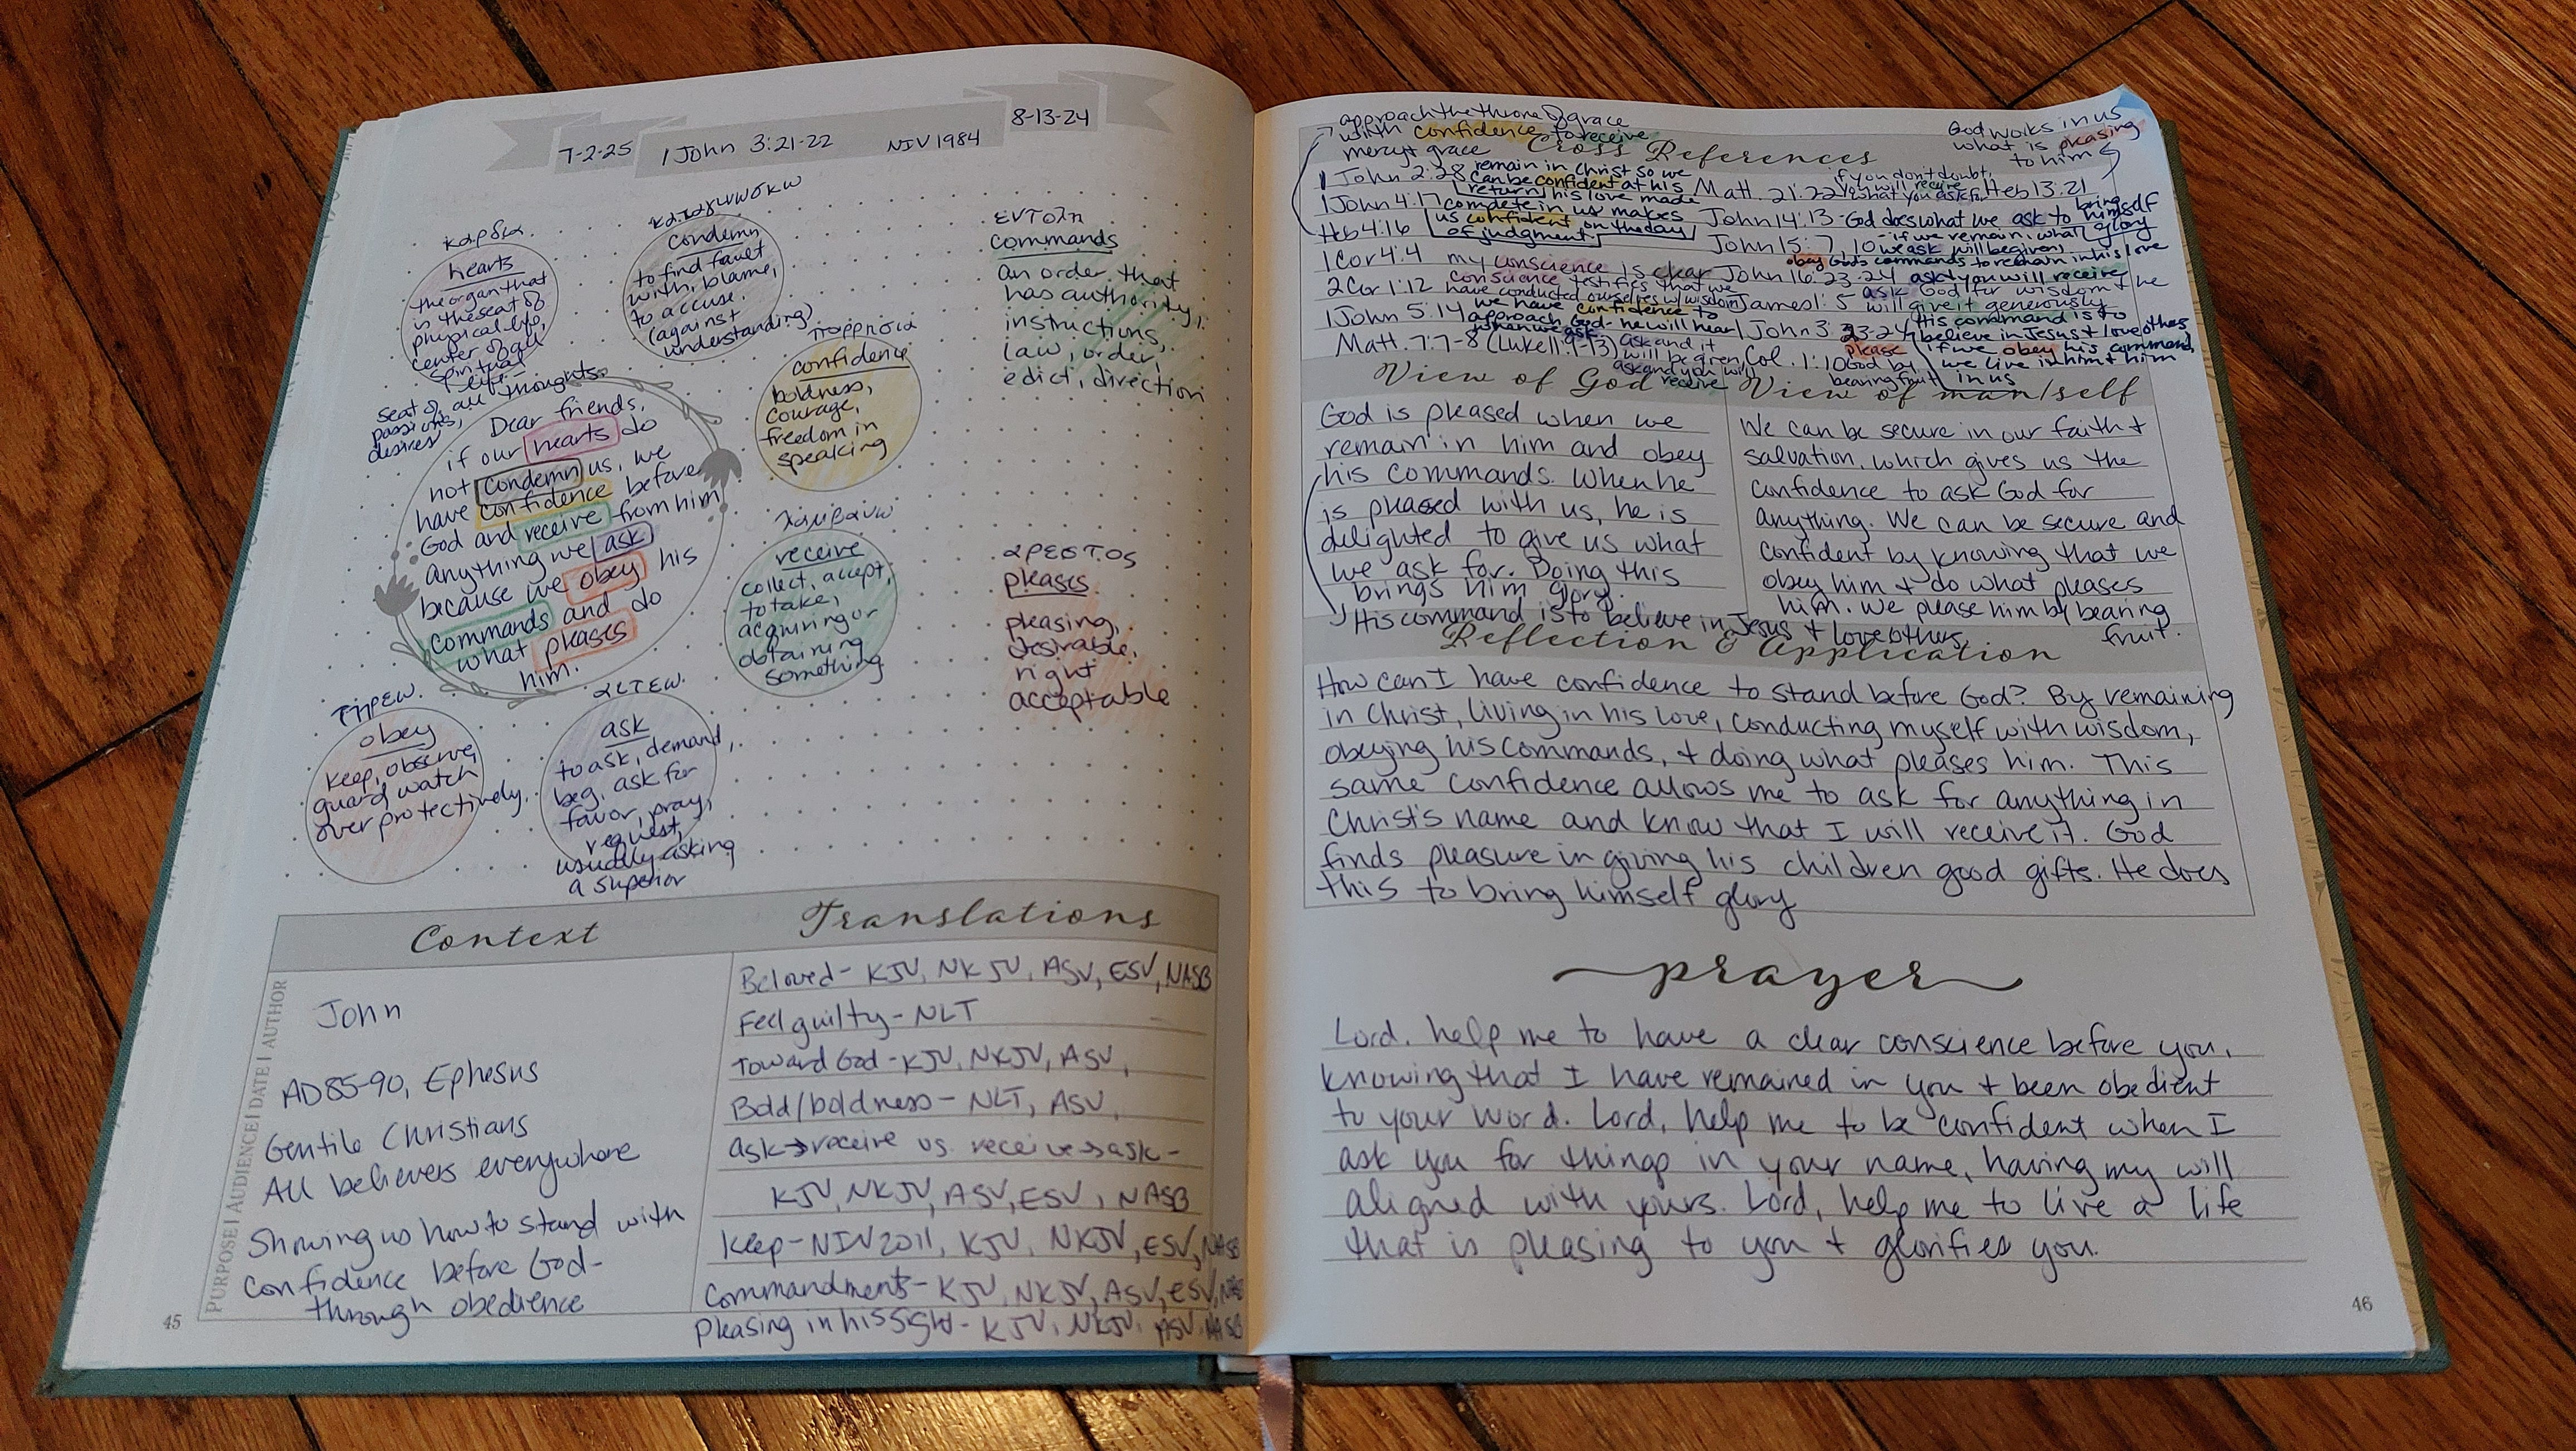 7-2-25 1 John 3:21-22 NIV 1984 8-13-24
καρδια
hearts
the organ that
is the seat of
physical life,
center of all
spiritual
life -
seat of all thoughts,
passions,
desires
καταγινωσκω
condemn
to find fault
with, blame,
to accuse.
(against
understanding)
παρρησια
confidence
boldness,
courage,
freedom in
speaking
εντολη
commands
an order that
has authority,
instructions,
law, order,
edict, direction
Dear friends,
if our hearts do
not condemn us, we
have confidence before
God and receive from him
anything we ask
because we obey his
commands and do
what pleases
him.
λαμβανω
receive
collect, accept,
to take,
acquiring or
obtaining
something
αρεστος
pleases
pleasing,
desirable,
right
acceptable
τηρεω
obey
keep, observe,
guard watch
over protectively.
αιτεω
ask
to ask, demand,
beg, ask for
favor, pray,
request,
usually asking
a superior
Context
PURPOSE | AUDIENCE | DATE | AUTHOR
John
AD 85-90, Ephesus
Gentile Christians
All believers everywhere
Showing us how to stand with
confidence before God-
through obedience
Translations
Beloved- KJV, NKJV, ASV, ESV, NASB
Feel guilty - NLT
Toward God - KJV, NKJV, ASV,
Bold/boldness - NLT, ASV,
ask→receive vs. receive→ask-
KJV, NKJV, ASV, ESV, NASB
Keep - NIV 2011, KJV, NKJV, ESV, NASB
Commandments - KJV, NKJV, ASV, ESV, NASB
Pleasing in his sight - KJV, NKJV, ASV, NASB
45
approach the throne of grace
with confidence to receive
mercy + grace
Cross References
God works in us
what is pleasing
to him
1 John 2:28 remain in Christ so we
can be confident at his
return
1 John 4:17 his love made
complete in us makes
us confident on the day
of judgment
Heb 4:16
1 Cor 4:4 my conscience is clear
2 Cor 1:12 conscience testifies that we
have conducted ourselves w/ wisdom
1 John 5:14 we have confidence to
approach God - he will hear
when we ask
Matt. 7:7-8 (Luke 11:1-13) ask and it
will be given
ask and you will
receive
Matt. 21:22 if you don't doubt,
you will receive
what you ask for
Heb 13:21
John 14:13 - God does what we ask to bring
himself
glory
John 15:7, 10 - if we remain, what
we ask will be given,
obey God's commands to remain in his love
John 16:23-24 ask + you will receive
James 1:5 ask God for wisdom + he
will give it generously
1 John 3:23-24 His command is to
believe in Jesus + love others
if we obey his command,
we live in him + him
in us
Col. 1:10 please
God by
bearing fruit
View of God
God is pleased when we
remain in him and obey
his commands. When he
is pleased with us, he is
delighted to give us what
we ask for. Doing this
brings him glory.
His command is to believe in Jesus + love others.
View of man/self
We can be secure in our faith +
salvation, which gives us the
confidence to ask God for
anything. We can be secure and
confident by knowing that we
obey him + do what pleases
him. We please him by bearing
fruit.
Reflection & Application
How can I have confidence to stand before God? By remaining
in Christ, living in his love, conducting myself with wisdom,
obeying his commands, + doing what pleases him. This
same confidence allows me to ask for anything in
Christ's name and know that I will receive it. God
finds pleasure in giving his children good gifts. He does
this to bring himself glory
prayer
Lord, help me to have a clear conscience before you,
knowing that I have remained in you + been obedient
to your word. Lord, help me to be confident when I
ask you for things in your name, having my will
aligned with yours. Lord, help me to live a life
that is pleasing to you + glorifies you.
46